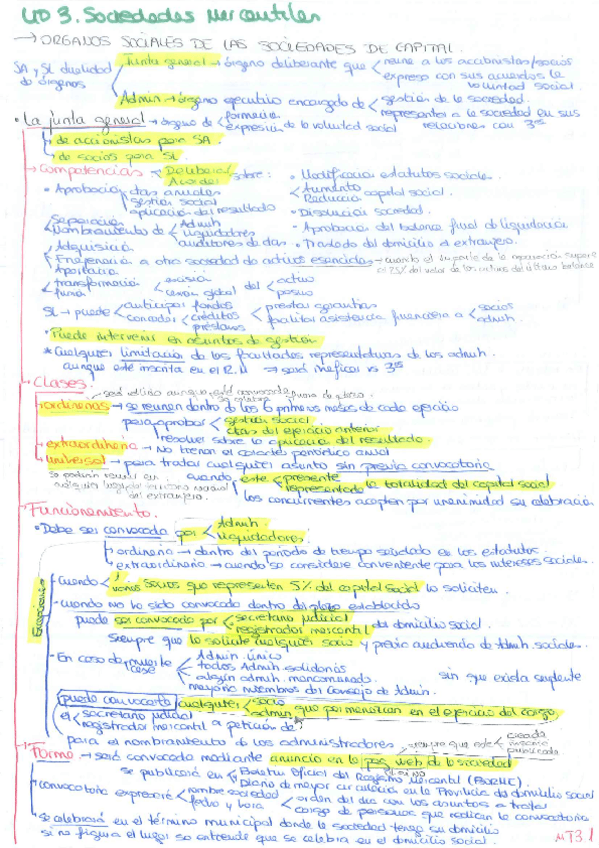 UD 3. Sociedades Mercantiles
→ ORGANOS SOCIALES DE LAS SOCIEDADES DE CAPITAL.
SA y SL dualidad de órganos
Junta general → órgano deliberante que < reune a los accionistas/socios
expresa con sus acuerdos la voluntad social.
Admin → órgano ejecutivo encargado de < gestión de la sociedad.
representar a la sociedad en sus relaciones con 3ºs
• La junta general → órgano de < formación
expresión de la voluntad social
→ de accionistas para SA
→ de socios para SL
→ Competencias < Deliberar
Acordar sobre:
• Aprobación < ctas anuales
gestión social
aplicación del resultado
• Modificación estatutos sociales.
< Aumento
Reducción capital social.
• Disolución sociedad.
< Separación
nombramiento de < Admh
liquidadores
auditores de ctas
• Aprobación del balance final de liquidación
• Traslado del domicilio al extranjero.
< Adquisición
Enajenación a otra sociedad de activos esenciales → cuando el importe de la operación supere el 25% del valor de los activos del último balance
Aportación
< transformación
fusión
< escisión
cesión global del < activo
pasivo
SL → puede < anticipar fondos
conceder < créditos
préstamos
< prestar garantías
facilitar asistencia financiera a < socios
admh.
• Puede intervenir en asuntos de gestión
* Cualquier limitación de las facultades representativas de los admh.
aunque esté inscrita en el R.M ⇒ será ineficaz vs 3ºs
→ Clases.
→ será válida aunque esté convocada
se celebre fuera de plazo.
→ ordinarias → se reunen dentro de los 6 primeros meses de cada ejercicio
para aprobar < gestión social
ctas del ejercicio anterior
resolver sobre la aplicación del resultado.
→ extraordinaria → No tienen el carácter periódico anual
→ universal → para tratar cualquier asunto sin previa convocatoria
se podrán reunir en cualquier lugar del territorio nacional
del extranjero.
cuando < esté < presente
representada la totalidad del capital social
los concurrentes acepten por unanimidad su celebración
→ Funcionamiento.
• Debe ser convocada por < Admh
liquidadores.
→ ordinaria → dentro del período de tiempo señalado en los estatutos.
→ extraordinaria → cuando se considere conveniente para los intereses sociales.
Excepciones
- Cuando < 1
varios socios que representen 5% del capital social lo soliciten.
- cuando no ha sido convocada dentro del plazo establecido
puede ser convocada por < secretario judicial
registrador mercantil del domicilio social.
siempre que lo solicite cualquier socio y previa audiencia de Admh. sociales.
- En caso de muerte
cese
< Admin. único
todos Admh solidarios
algún admh. mancomunado.
mayoría miembros del Consejo de Admin.
sin que exista suplente
puede convocarla cualquier < socio
admin que permanezcan en el ejercicio del cargo
el < secretario judicial
registrador mercantil a petición de
para el nombramiento de los administradores
→ Forma → será convocada mediante anuncio en la pag web de la sociedad
siempre que esté < creada
inscrita
publicada
si no
se publicará en < Boletín Oficial del Registro Mercantil (BORME).
Diario de mayor circulación en la Provincia de domicilio social
→ convocatoria expresará < nombre sociedad
fecha y hora
< orden del día con los asuntos a tratar
cargo de personas que realicen la convocatoria
→ se celebrará en el término municipal donde la sociedad tenga su domicilio
si no figura el lugar se entiende que se celebra en el domicilio social.
MT3 1